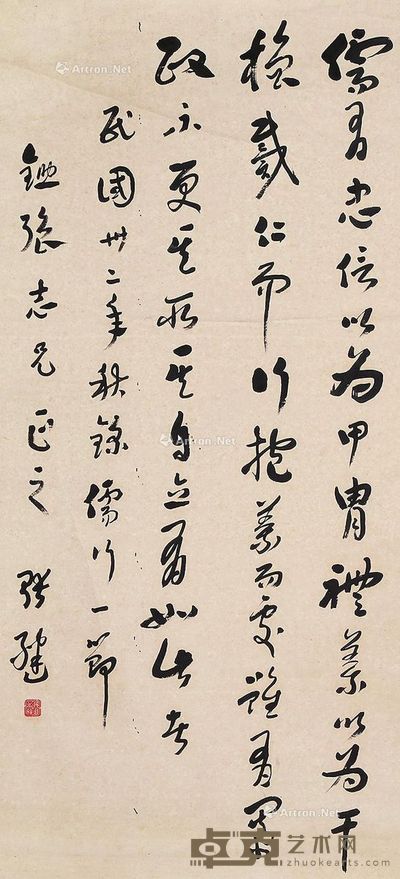 儒有忠信以為甲冑禮義以為干
櫓戴仁而行抱義而處雖有暴
政不更其所其自立有如此者
民國卅二年秋錄儒行一節
鋤強志兄正之 張繼
Artron.Net
Artron.Net
Artron.Net
Artron.Net
Artron.Net
卓克艺术网
zhuokearts.com